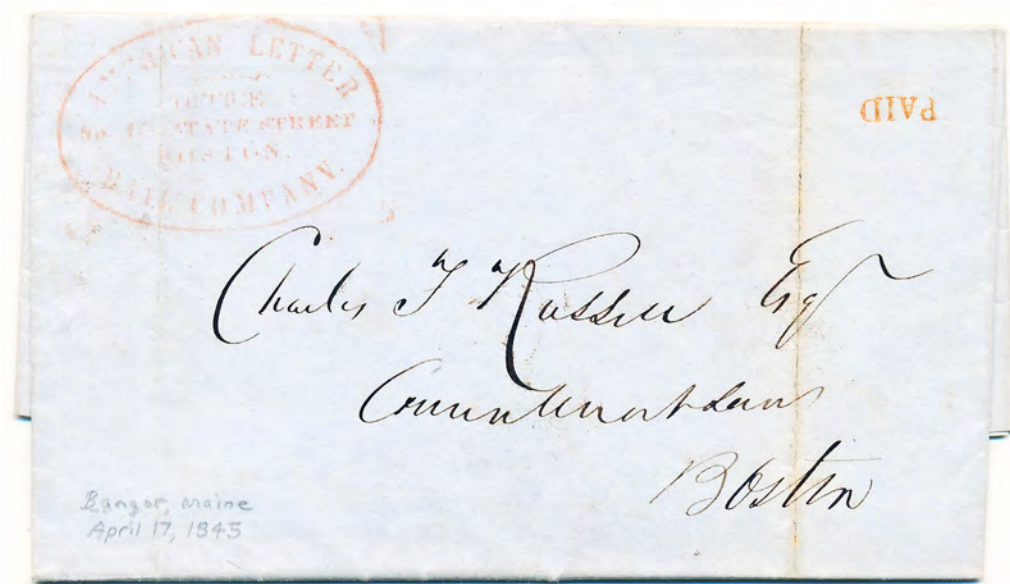 AMERICAN LETTER
OFFICE
No. STATE STREET
BOSTON.
MAIL COMPANY.
PAID
Charles T Russell Esq
Counsellor at Law
Boston
Bangor, Maine
April 17, 1845